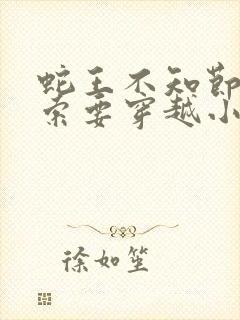 蛇王不知节
索要穿越小
徐如笙